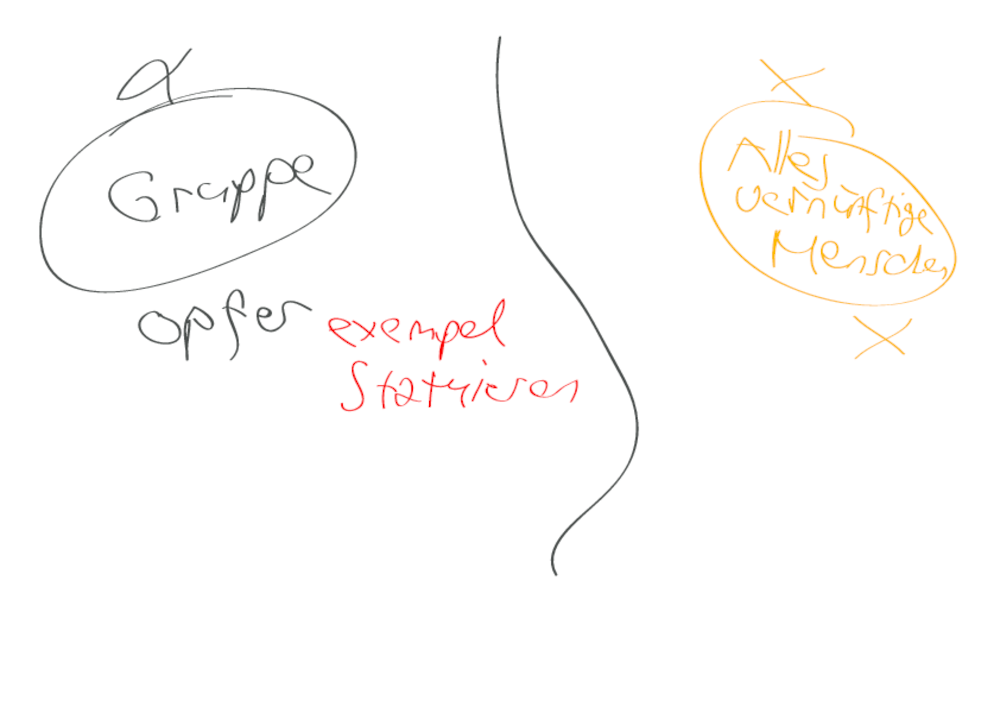 Gruppe
opfer
exempel
Statuieren
Alles
vernünftige
Menschen